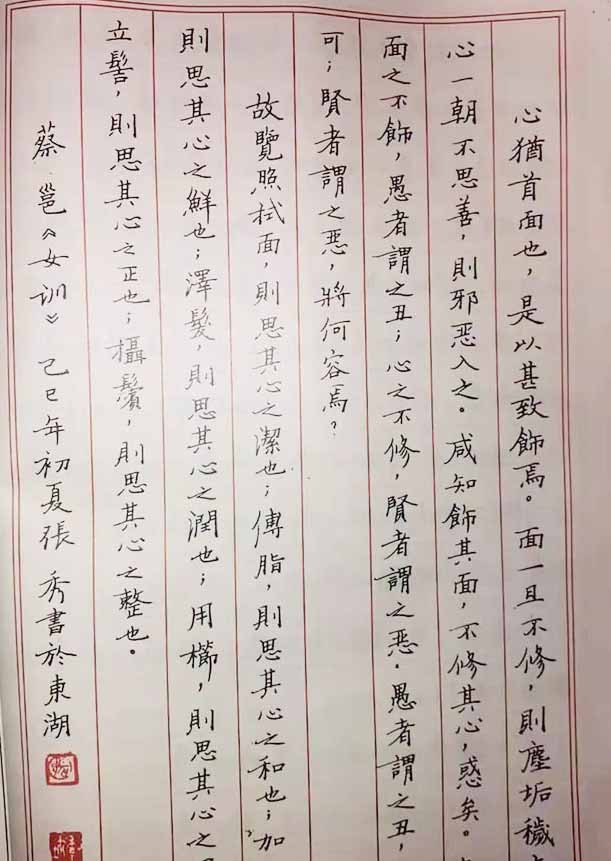 心猶首面也，是以甚致飾焉。面一旦不修，則塵垢穢
心一朝不思善，則邪恶入之。咸知飾其面，不修其心，惑矣。
面之不飾，愚者謂之丑；心之不修，賢者謂之恶．愚者謂之丑，
可；賢者謂之惡，將何容焉？
故覽照拭面，則思其心之潔也；傅脂，則思其心之和也；加
則思其心之鮮也；澤髮，則思其心之潤也；用櫛，則思其心之
立髻，則思其心之正也；攝鬢，則思其心之整也。
蔡邕《女训》己巳年初夏張秀書於東湖